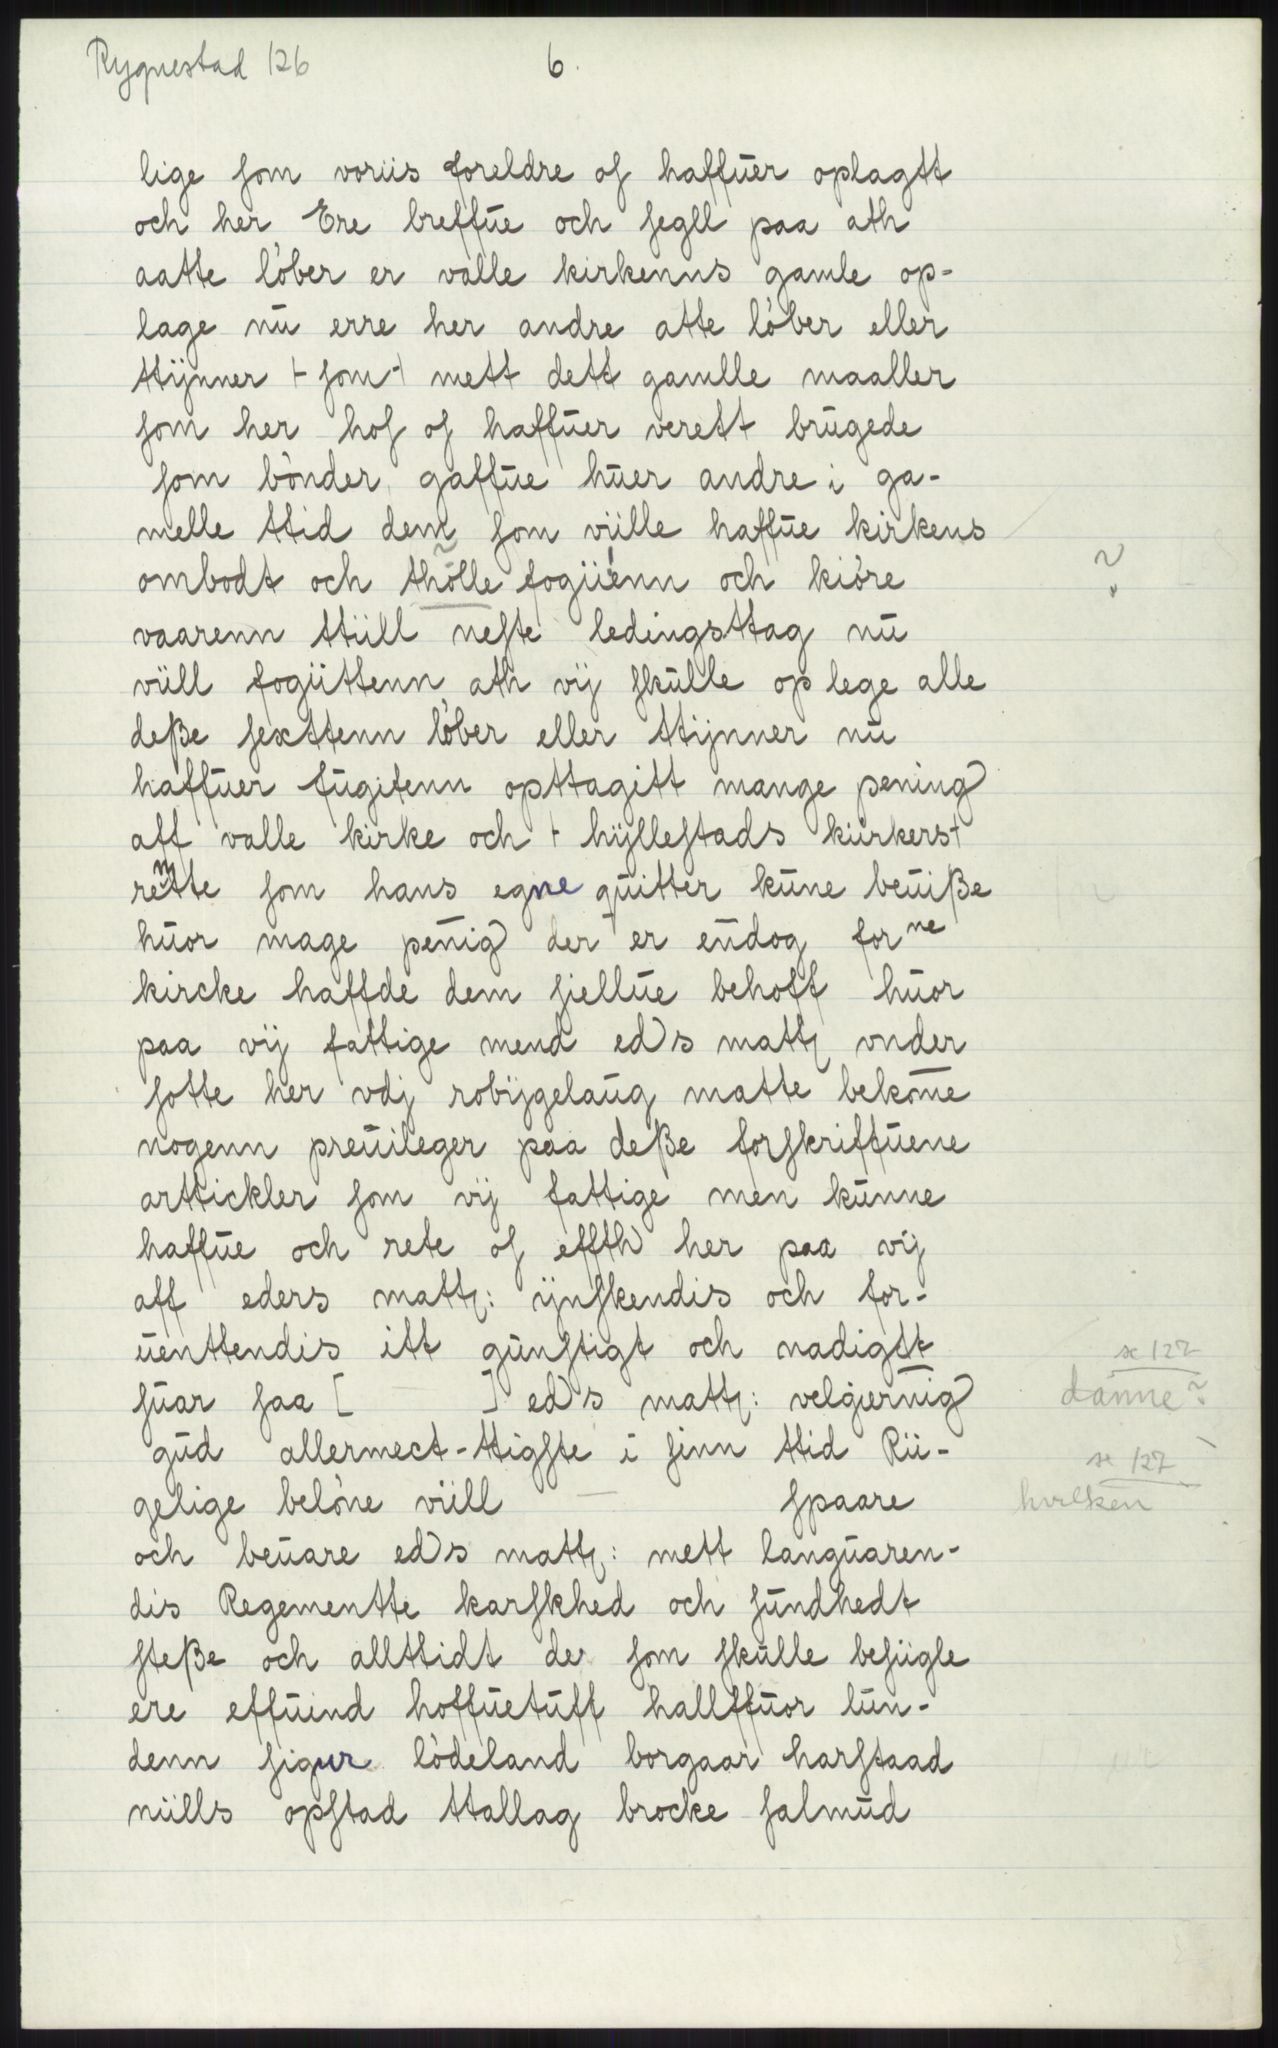 Rygnestad 126
6.
lige som voriis foreldre os haffuer oplagtt
och her Ere breffue och segll paa ath
aatte löber er valle kirkenns gamle op-
lage nu erre her andre atte löber eller
ttÿnner + som + mett dett gamlle maaller
som her hos os haffuer verett brugede
som bönder gaffue huer andre i ga-
melle ttid dem som viille haffue kirkens
ombodt och thölle fogiienn och kiöre
vaarenn ttiill neste ledingsttag nu
viill fogiittenn ath vij skulle op lege alle
deße sexttenn löber eller ttÿnner nu
haffuer fugitenn opttagitt mange pening
aff valle kirke och + hÿllestads kiirkers +
rentte som hans egne quitter kune beuiße
huor mage penig der er endog for ne
kircke haffde dem siellue behoff huor
paa vij fattige mend eds matt vnder
sotte her vdj robijgelaug matte bekome
nogenn preuileger paa deße forskriffuene
arttickler som vij fattige men kunne
haffue och rete os effth her paa vij
aff eders matt: ijnskendis och for-
uenttendis itt gunstigt och nadigtt
suar faa [ ] eds matt: velgiernig
gud allermect-ttigste i sinn ttid Rii-
gelige belöne viill — spaare
och beuare eds matt: mett languaren-
dis Regementte karskhed och sundhedt
steße och allttidt de som skulle besiigle
ere effuind hoffuetuff hallffuor lun-
denn sigur lödeland borgaar harstaad
niills opstad ttallag brocke salmud
?
se 127
danne?
se 127
hvilken